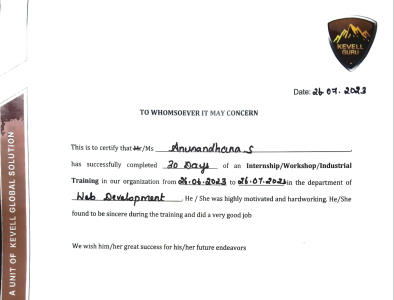 KEVELL
GURU
Date: 26.07.2023
TO WHOMSOEVER IT MAY CONCERN
This is to certify that Mr/Ms Anunandhana S
has successfully completed 30 Days of an Internship/Workshop/Industrial
Training in our organization from 26.06.2023 to 26.07.2023 in the department of
Web Development. He / She was highly motivated and hardworking. He/She
found to be sincere during the training and did a very good job
We wish him/her great success for his/her future endeavors
A UNIT OF KEVELL GLOBAL SOLUTION